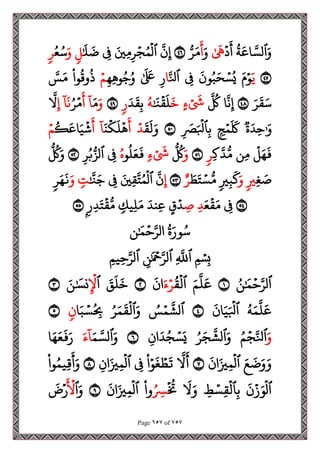 وَٱلسَّاعَةُ أَدْهَىٰ وَأَمَرُّ ٤٦ إِنَّ ٱلْمُجْرِمِينَ فِي ضَلَٰلٖ وَسُعُرٖ
٤٧ يَوْمَ يُسْحَبُونَ فِي ٱلنَّارِ عَلَىٰ وُجُوهِهِمْ ذُوقُوا۟ مَسَّ
سَقَرَ ٤٨ إِنَّا كُلَّ شَيْءٍ خَلَقْنَٰهُ بِقَدَرٖ ٤٩ وَمَآ أَمْرُنَآ إِلَّا
وَٰحِدَةٞ كَلَمْحِۭ بِٱلْبَصَرِ ٥٠ وَلَقَدْ أَهْلَكْنَآ أَشْيَاعَكُمْ
فَهَلْ مِن مُّدَّكِرٖ ٥١ وَكُلُّ شَيْءٖ فَعَلُوهُ فِي ٱلزُّبُرِ ٥٢ وَكُلُّ
صَغِيرٖ وَكَبِيرٖ مُّسْتَطَرٌ ٥٣ إِنَّ ٱلْمُتَّقِينَ فِي جَنَّٰتٖ وَنَهَرٖ
٥٤ فِي مَقْعَدِ صِدْقٍ عِندَ مَلِيكٖ مُّقْتَدِرِۭ ٥٥
سُورَةُ ٱلرَّحْمَٰن
بِسْمِ ٱللَّهِ ٱلرَّحْمَٰنِ ٱلرَّحِيمِ
ٱلرَّحْمَٰنُ ١ عَلَّمَ ٱلْقُرْءَانَ ٢ خَلَقَ ٱلْإِنسَٰنَ ٣
عَلَّمَهُ ٱلْبَيَانَ ٤ ٱلشَّمْسُ وَٱلْقَمَرُ بِحُسْبَانٖ ٥
وَٱلنَّجْمُ وَٱلشَّجَرُ يَسْجُدَانِ ٦ وَٱلسَّمَآءَ رَفَعَهَا
وَوَضَعَ ٱلْمِيزَانَ ٧ أَلَّا تَطْغَوْا۟ فِي ٱلْمِيزَانِ ٨ وَأَقِيمُوا۟
ٱلْوَزْنَ بِٱلْقِسْطِ وَلَا تُخْسِرُوا۟ ٱلْمِيزَانَ ٩ وَٱلْأَرْضَ
Page ٦٥٧ of ٧٥٧